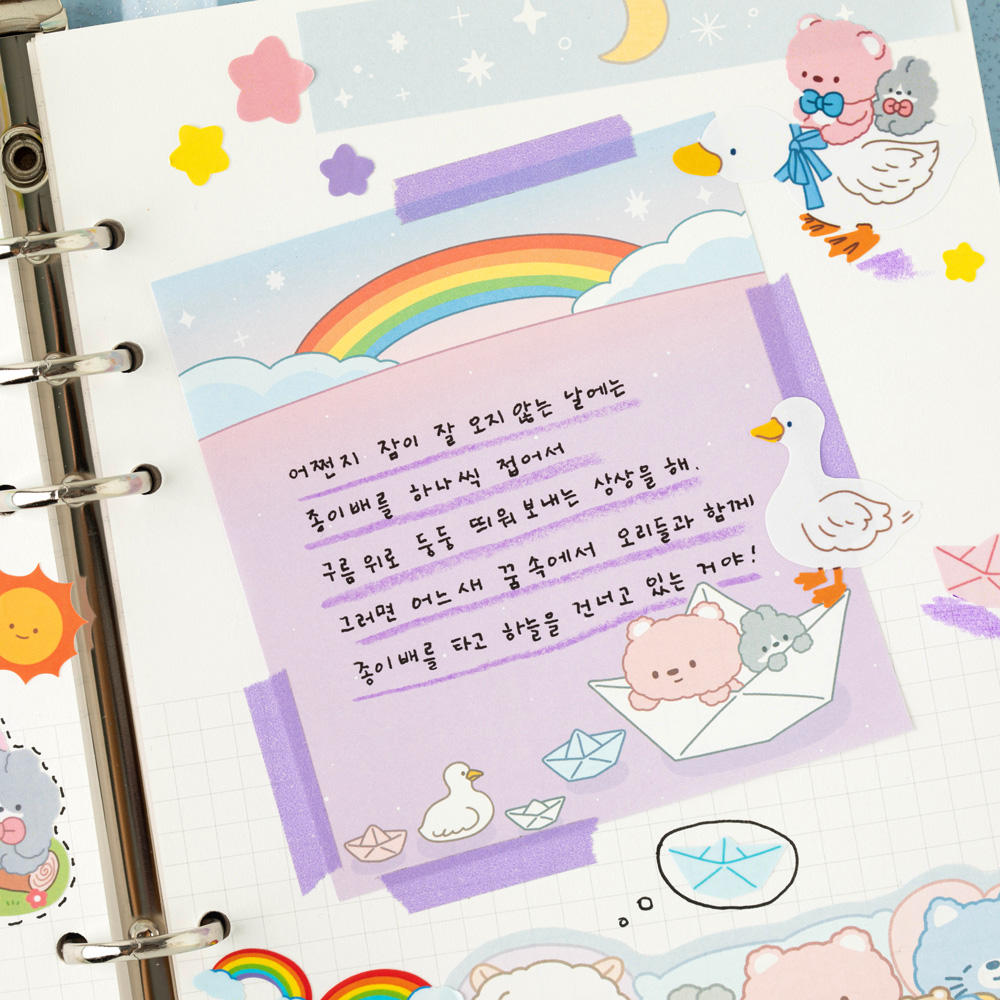 어쩐지 잠이 잘 오지 않는 날에는
종이배를 하나씩 접어서
구름 위로 둥둥 띄워 보내는 상상을 해.
그러면 어느새 꿈속에서 오리들과 함께
종이배를 타고 하늘을 건너고 있는 거야!